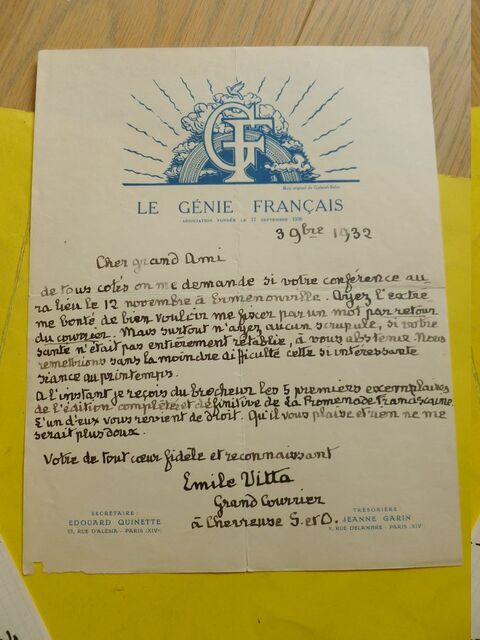 GF
Bois original de Gabriel-Belot
LE GÉNIE FRANÇAIS
ASSOCIATION FONDÉE LE 17 SEPTEMBRE 1926
3 9bre 1932
Cher grand Ami
de tous cotés on me demande si votre conférence au-
ra lieu le 12 novembre à Ermenonville. Ayez l'extrê
me bonté de bien vouloir me fixer par un mot par retour
du courrier. Mais surtout n'ayez aucun scrupule, si votre
santé n'était pas entièrement rétablie, à vous abstenir. Nous
remettrions sans la moindre difficulté cette si intéressante
séance au printemps.
A l'instant je reçois du brocheur les 5 premiers exemplaires
de l'édition complète et définitive de la Promenade Franciscaine.
L'un d'eux vous revient de droit. Qu'il vous plaise et rien ne me
serait plus doux.
Votre de tout cœur fidèle et reconnaissant
Emile Vitta
Grand Courrier
à Chevreuse S. et O.
SECRÉTAIRE :
EDOUARD QUINETTE
RUE D'ALÉSIA - PARIS (XIVe)
TRÉSORIÈRE
JEANNE GARIN
RUE DELAMBRE - PARIS (XIVe)